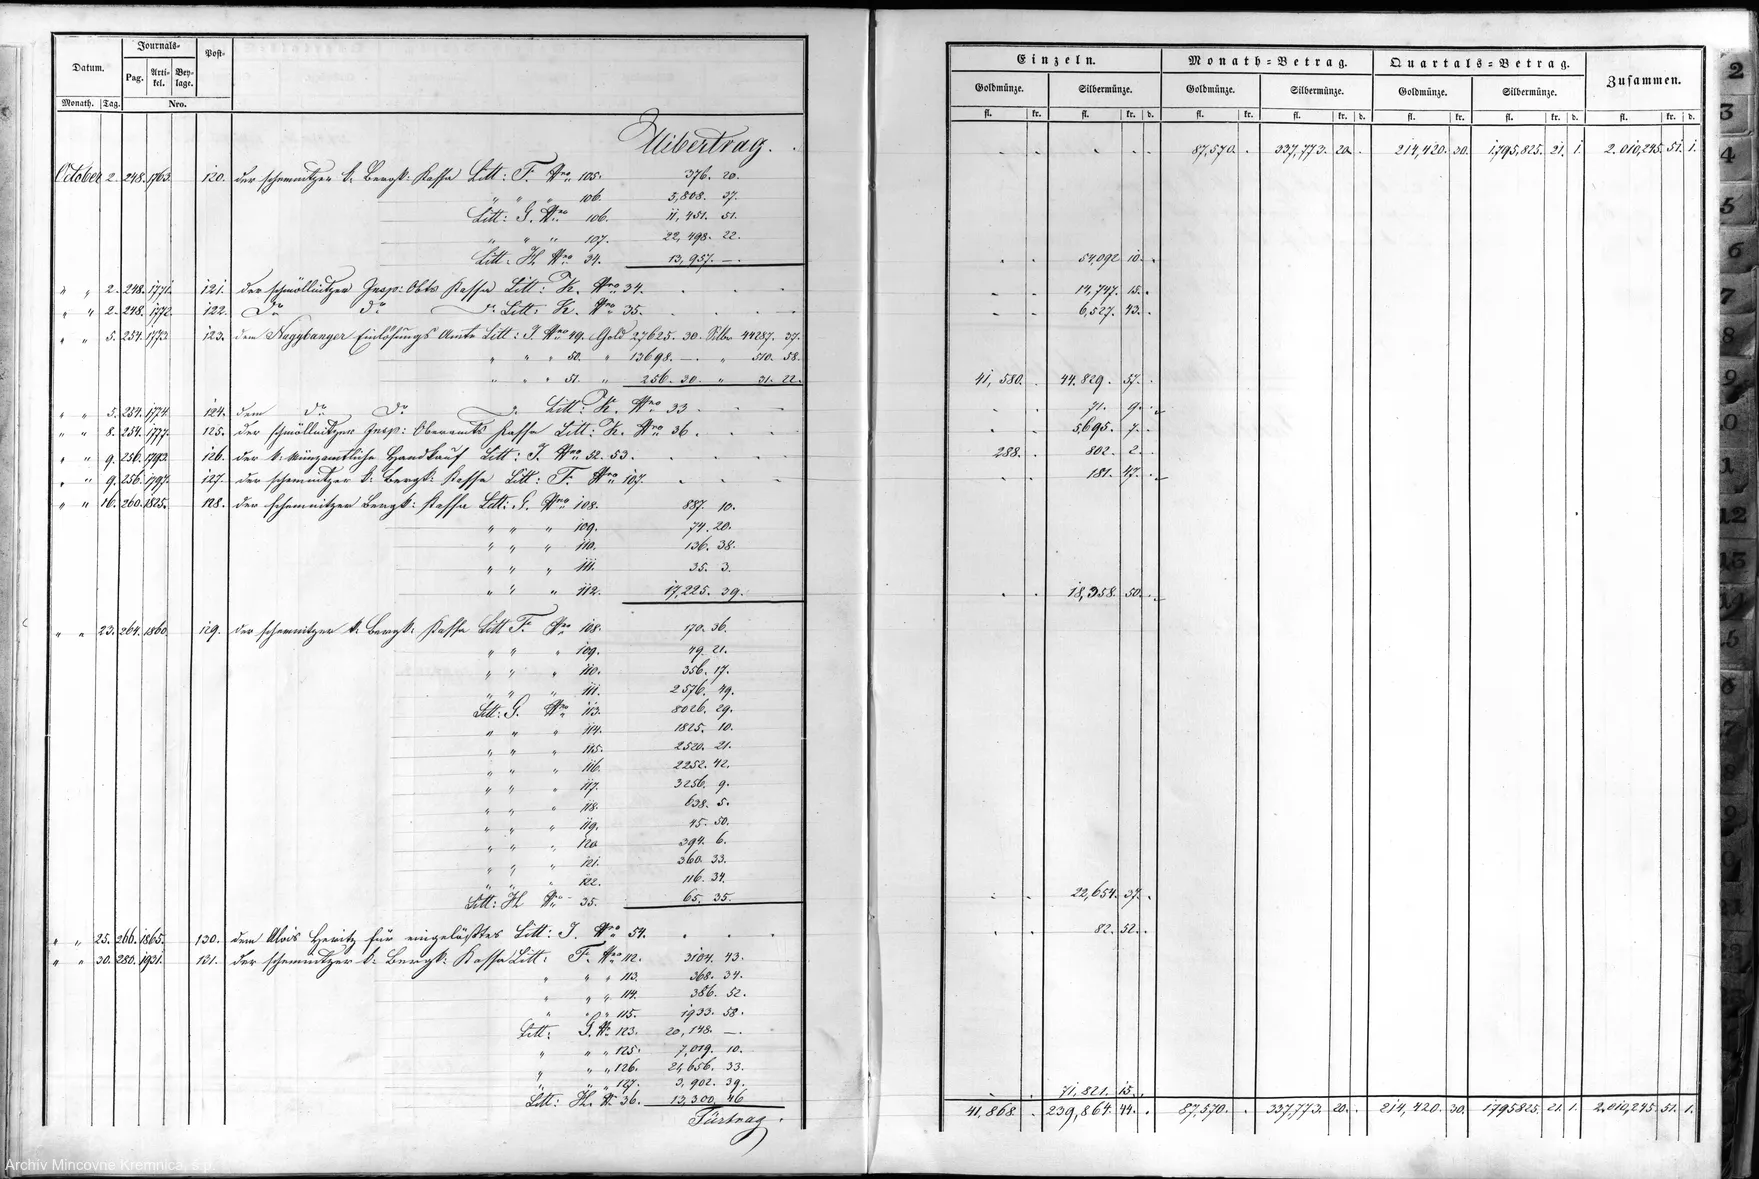 Datum. Journals- Post- Einzeln. Monath-Betrag. Quartals-Betrag. Zusammen.
Pag. Arti-kel. Bey-lage. Goldmünze. Silbermünze. Goldmünze. Silbermünze. Goldmünze. Silbermünze.
Monath. Tag. Nro. fl. kr. fl. kr. d. fl. kr. fl. kr. d. fl. kr. fl. kr. d. fl. kr. d.
Uibertrag. 87,570. 337,773. 20. 214,420. 30. 1,795,825. 21. 1. 2,010,245. 51. 1.
October 2. 248. 1763. 120. der schemnitzer k: Bergk: Kassa Litt: F. Nro 105. 376. 20.
" " " 106. 5,808. 37.
Litt: G. Nro 106. 11,451. 51.
" " " 107. 22,498. 22.
Litt: H. Nro 34. 13,957. — 54,092. 10.
" " 2. 248. 1771. 121. der schmöllnitzer Insp: Obts Kassa Litt: K. Nro 34. 14,747. 15.
" " 2. 248. 1772. 122. do do do Litt: K. Nro 35. 6,527. 43.
" " 5. 254. 1773. 123. dem Nagybanyer Einlösungs Amte Litt: J. Nro 49. Gold 27625. 30. Silber 44287. 37.
" " " 50. " 13698. — " 510. 58.
" " " 51. " 256. 30. " 31. 22. 41,580. 44,829. 57.
" " 5. 254. 1774. 124. dem do do do Litt: K. Nro 33 71. 9.
" " 8. 254. 1777. 125. der schmöllnitzer Insp: Oberamts Kassa Litt: K. Nro 36. 5,695. 7.
" " 9. 256. 1793. 126. der k: Münzamtliche Handkauf Litt: J. Nro 52. 53. 288. 802. 2.
" " 9. 256. 1797. 127. der schemnitzer k: Bergk: Kassa Litt: F. Nro 107. 181. 47.
" " 16. 260. 1825. 128. der schemnitzer Bergk: Kassa Litt: G. Nro 108. 887. 10.
" " " 109. 74. 20.
" " " 110. 136. 38.
" " " 111. 35. 3.
" " " 112. 17,225. 39. 18,358. 50.
" " 23. 264. 1860. 129. der schemnitzer k: Bergk: Kassa Litt F. Nro 108. 170. 36.
" " " 109. 49. 21.
" " " 110. 356. 17.
" " " 111. 2576. 49.
Litt: G. Nro 113. 8026. 29.
" " " 114. 1825. 10.
" " " 115. 2520. 21.
" " " 116. 2252. 42.
" " " 117. 3256. 9.
" " " 118. 638. 5.
" " " 119. 45. 50.
" " " 120 394. 6.
" " " 121. 360. 33.
" " " 122. 116. 34.
Litt: H Nro 35. 65. 35. 22,654. 37.
" " 25. 266. 1865. 130. dem Alois für eingelößtes Litt: J. Nro 54. 82. 52.
" " 30. 280. 1931. 131. der schemnitzer k: Bergk: Kassa Litt: F. Nro 112. 3104. 43.
" " " 113. 368. 34.
" " " 114. 386. 52.
" " " 115. 1933. 58.
Litt: G. Nr 123. 20,148. —
" " " 125. 7,019. 10.
" " " 126. 21,656. 33.
" " " 127. 3,902. 39.
Litt: H. Nr 36. 13,300. 46 71,821. 15.
Fürtrag. 41,868. 239,864. 44. 87,570. 337,773. 20. 214,420. 30. 1795825. 21. 1. 2,010,245. 51. 1.
Archív Mincovne Kremnica, š.p.